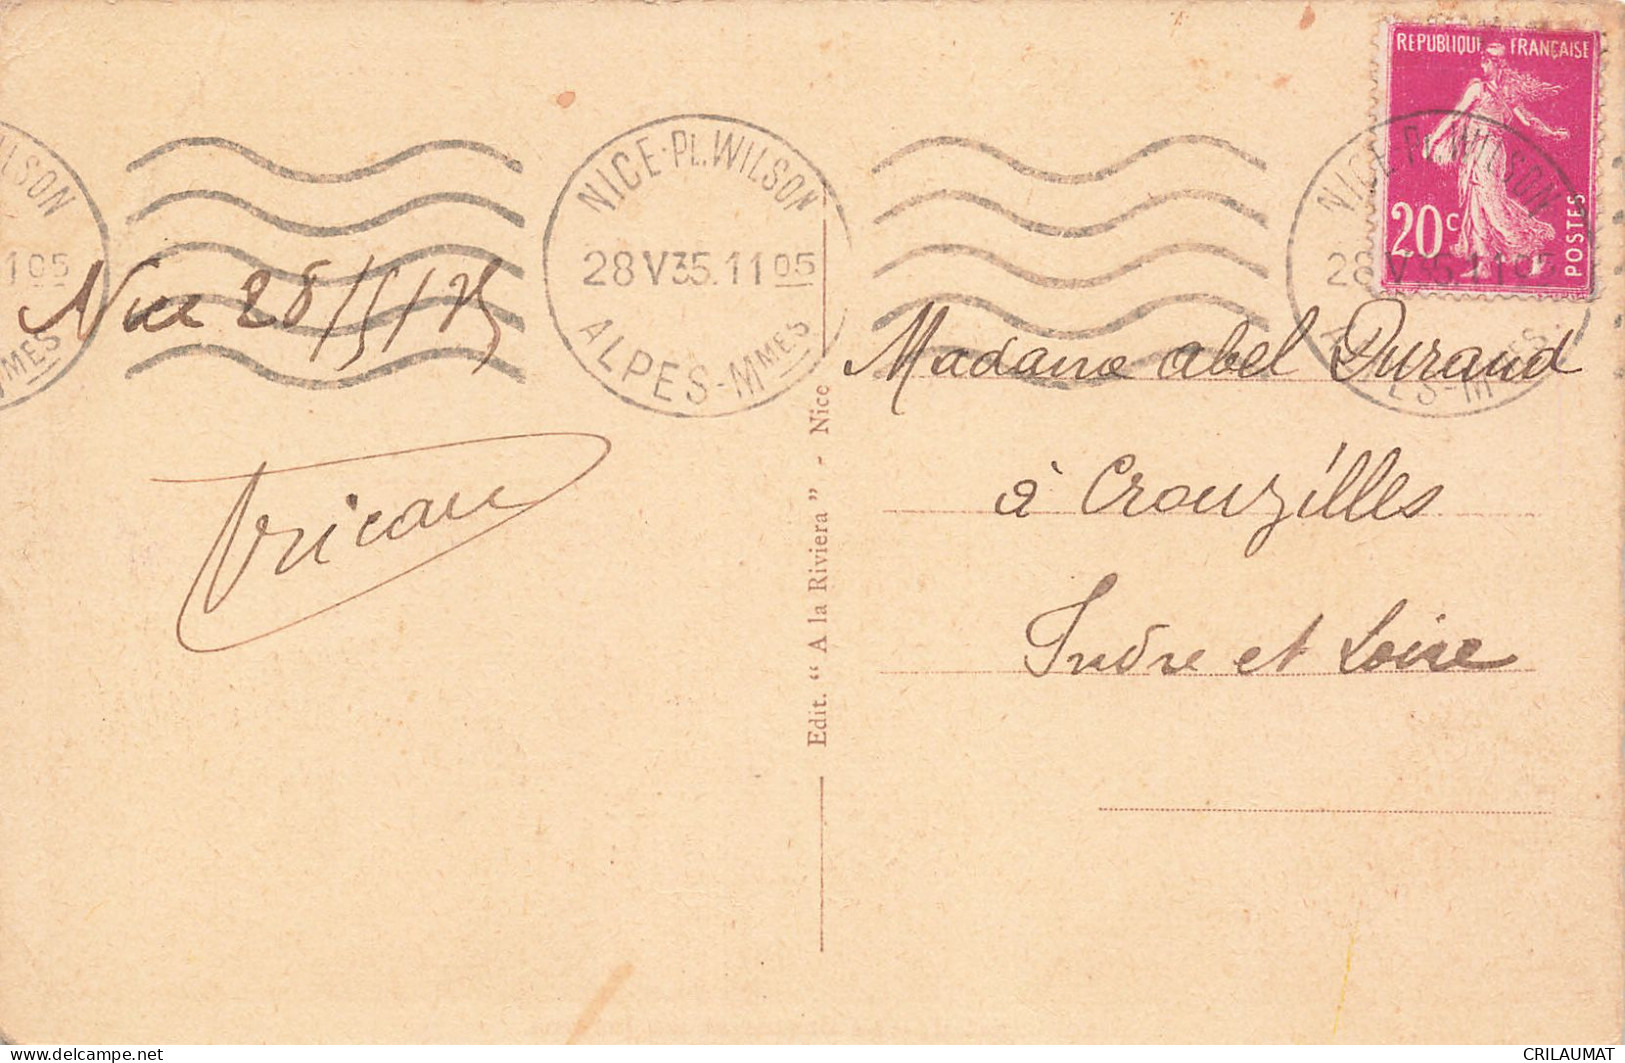 RÉPUBLIQUE FRANÇAISE
20c
POSTES
NICE-PL.WILSON
28 V 35.11 05
ALPES-MMES
ILSON
1 05
MMES
NICE-PL.WILSON
28 V 35.11 05
ALPES-MMES
Nice 28/5/35
Madame abel Durand
à Crouzilles
Indre et Loire
Edit. “ A la Riviera ” - Nice
delcampe.net
CRILAUMAT